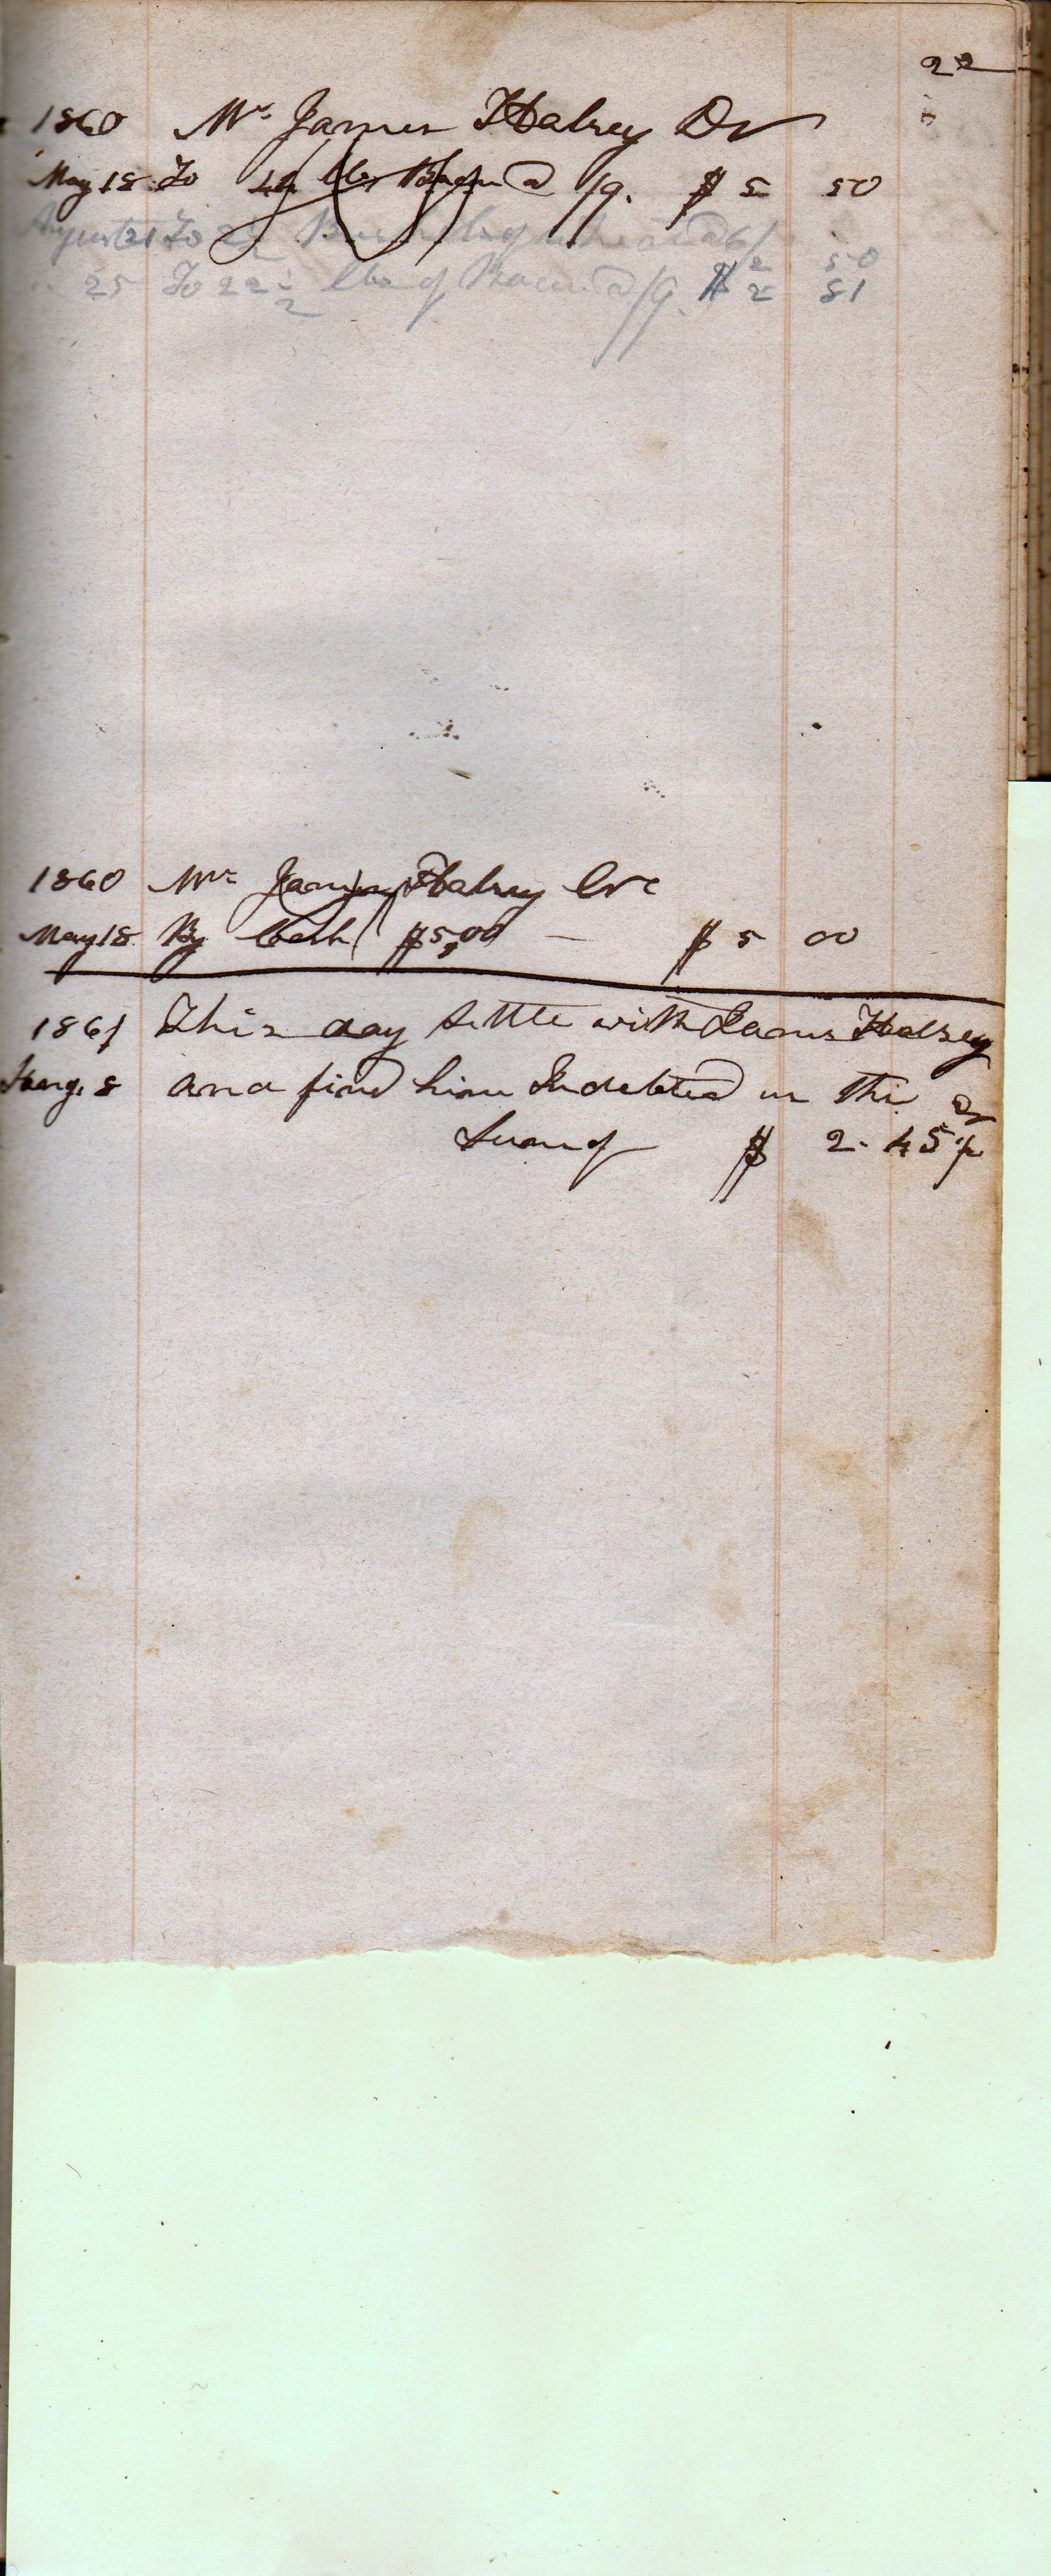 22
1860 Mr James Halsey Dr
May 18 To 44 lbs Bacon @ /9. $ 5 50
August 21 To 2 1/2 Bushels of wheat @ 6/ 2 50
" 25 To 22 1/2 lbs of Bacon @ /9. $ 2 81
1860 Mr James Halsey Cr
May 18 By Cash $5,00 — $ 5 00
1861 This day settle with James Halsey
8 and find him Indebted in the
Sum of $ 2. 45